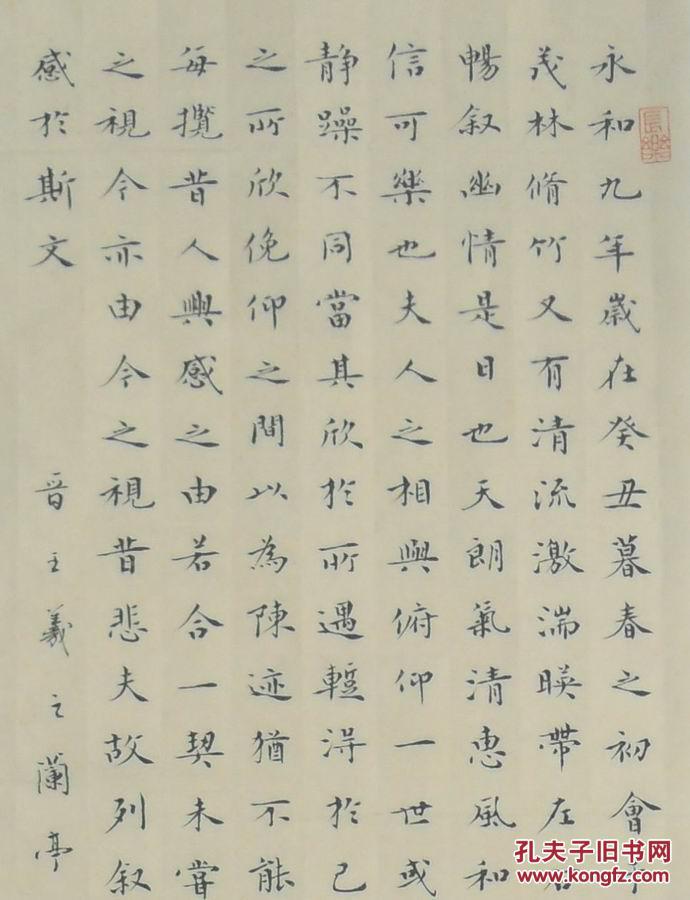 永和九年歲在癸丑暮春之初會
茂林脩竹又有清流激湍暎帶左右
暢叙幽情是日也天朗氣清惠風和
信可樂也夫人之相與俯仰一世或
静躁不同當其欣於所遇蹔得於己
之所欣俛仰之間以為陳迹猶不能
每攬昔人興感之由若合一契未嘗
之視今亦由今之視昔悲夫故列叙
感於斯文 晉王羲之蘭亭
長樂
孔夫子旧书网
KONGFZ.COM